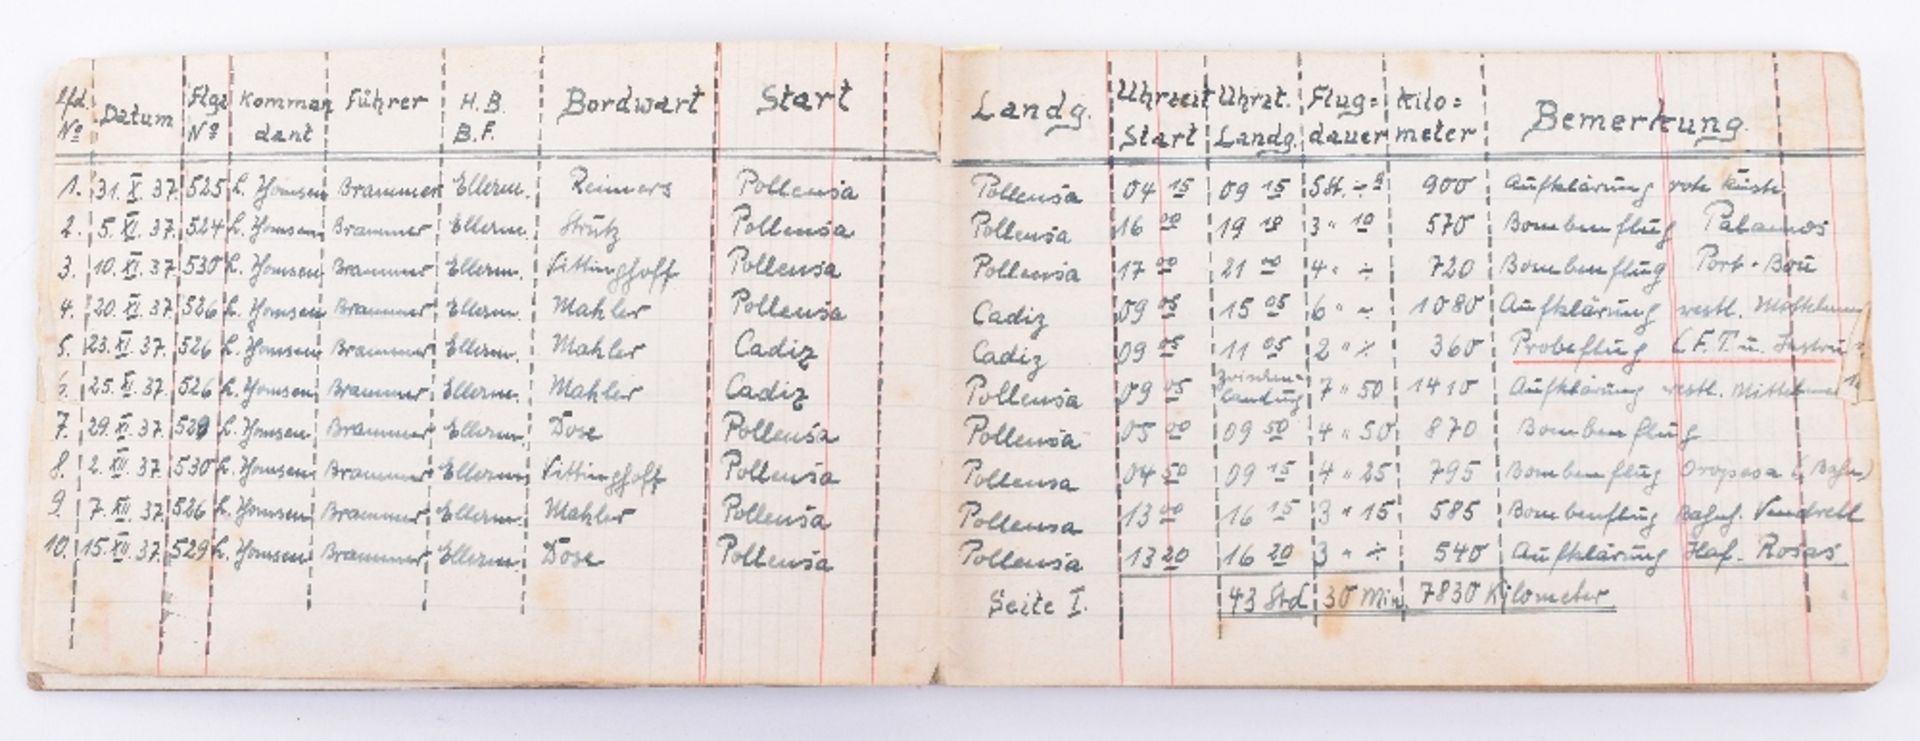 Lfd. Nº Datum Flgz Nº Komman dant Führer H.B. B.F. Bordwart Start Landg. Uhrzeit Start Uhrzt. Landg. Flug= dauer Kilo= meter Bemerkung.
1. 31. X. 37. 525 L. Homsen Brammer Ellerm. Reimers Pollensa Pollensa 04 15 09 15 5 St. 900 Aufklärung rote Küste
2. 5. XI. 37. 524 L. Homsen Brammer Ellerm. Strutz Pollensa Pollensa 16 00 19 10 3 " 10 570 Bombenflug Palamos
3. 10. XI. 37. 530 L. Homsen Brammer Ellerm. Vittinghoff Pollensa Pollensa 17 00 21 00 4 " ÷ 720 Bombenflug Port-Bou
4. 20. XI. 37. 526 L. Homsen Brammer Ellerm. Mahler Pollensa Cadiz 09 05 15 05 6 " ÷ 1080 Aufklärung westl. Mittelmeer
5. 23. XI. 37. 526 L. Homsen Brammer Ellerm. Mahler Cadiz Cadiz 09 05 11 05 2 " ÷ 360 Probeflug (F.T. u. Instru
6. 25. XI. 37. 526 L. Homsen Brammer Ellerm. Mahler Cadiz Pollensa 09 05 Zwischen- landung 7 " 50 1410 Aufklärung westl. Mittelmeer
7. 29. XI. 37. 529 L. Homsen Brammer Ellerm. Dose Pollensa Pollensa 05 00 09 50 4 " 50 870 Bombenflug
8. 2. XII. 37. 530 L. Homsen Brammer Ellerm. Vittinghoff Pollensa Pollensa 04 50 09 15 4 " 25 795 Bombenflug Oropesa (Bahn)
9. 7. XII. 37. 526 L. Homsen Brammer Ellerm. Mahler Pollensa Pollensa 13 00 16 15 3 " 15 585 Bombenflug Bahnh. Vendrell
10. 15. XII. 37. 529 L. Homsen Brammer Ellerm. Dose Pollensa Pollensa 13 20 16 20 3 " ÷ 540 Aufklärung Haf. Rosas
Seite I. 43 Std 30 Min. 7830 Kilometer.